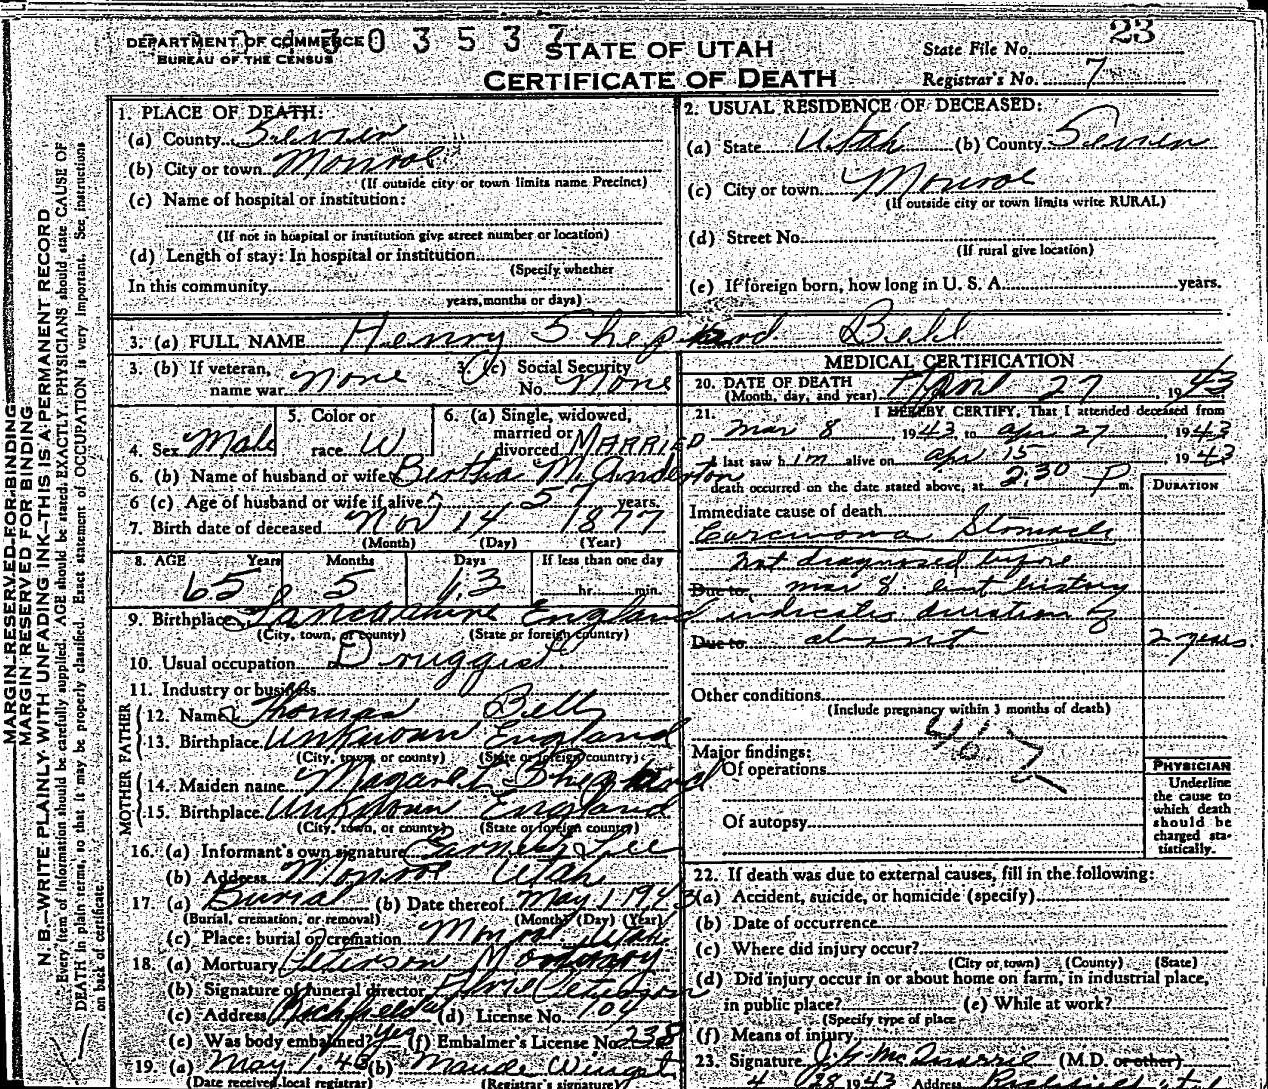 DEPARTMENT OF COMMERCE
BUREAU OF THE CENSUS
303537
STATE OF UTAH
CERTIFICATE OF DEATH
State File No. 23
Registrar's No. 7
MARGIN RESERVED FOR BINDING
MARGIN RESERVED FOR BINDING
N. B.—WRITE PLAINLY WITH UNFADING INK—THIS IS A PERMANENT RECORD
Every item of information should be carefully supplied. AGE should be stated EXACTLY. PHYSICIANS should state CAUSE OF
DEATH in plain terms, so that it may be properly classified. Exact statement of OCCUPATION is very important. See, instructions
on back of certificate.
1. PLACE OF DEATH:
(a) County Sevier
(b) City or town Monroe
(If outside city or town limits name Precinct)
(c) Name of hospital or institution:
(If not in hospital or institution give street number or location)
(d) Length of stay: In hospital or institution
(Specify whether
In this community
years, months or days)
2. USUAL RESIDENCE OF DECEASED:
(a) State Utah (b) County Sevier
(c) City or town Monroe
(If outside city or town limits write RURAL)
(d) Street No.
(If rural give location)
(e) If foreign born, how long in U. S. A. years.
3. (a) FULL NAME Henry Shepherd Bell
3. (b) If veteran, name war None
3. (c) Social Security No. None
4. Sex Male
5. Color or race W
6. (a) Single, widowed, married or divorced MARRIED
6. (b) Name of husband or wife Bertha M. Anderton
6 (c) Age of husband or wife if alive 57 years.
7. Birth date of deceased Nov 14 1877
(Month) (Day) (Year)
8. AGE Years Months Days If less than one day
65 5 13 hr. min.
9. Birthplace Lancashire England
(City, town, or county) (State or foreign country)
10. Usual occupation Druggist
11. Industry or business
FATHER
12. Name Thomas Bell
13. Birthplace Unknown England
(City, town or county) (State or foreign country)
MOTHER
14. Maiden name Margaret Shepherd
15. Birthplace Unknown England
(City, town, or county) (State or foreign country)
16. (a) Informant's own signature Earnest Lee
(b) Address Monroe Utah
17. (a) Burial (b) Date thereof May 1 1943
(Burial, cremation, or removal) (Month) (Day) (Year)
(c) Place: burial or cremation Monroe Utah
18. (a) Mortuary Peterson Mortuary
(b) Signature of funeral director
(c) Address Richfield (d) License No. 104
(e) Was body embalmed? yes (f) Embalmer's License No. 238
19. (a) May 1. 43 (b) Maude Winget
(Date received local registrar) (Registrar's signature)
MEDICAL CERTIFICATION
20. DATE OF DEATH April 27 1943
(Month, day, and year)
21. I HEREBY CERTIFY, That I attended deceased from
Mar 8, 1943, to Apr 27, 1943
I last saw him alive on Apr 15 1943
death occurred on the date stated above, at 2:30 P m.
DURATION
Immediate cause of death
Carcinoma Stomach
Not diagnosed before
Due to Mar 8 but history
indicates duration of
Due to about 2 years
Other conditions
(Include pregnancy within 3 months of death)
46
Major findings:
Of operations
Of autopsy
PHYSICIAN
Underline
the cause to
which death
should be
charged sta-
tistically.
22. If death was due to external causes, fill in the following:
(a) Accident, suicide, or homicide (specify)
(b) Date of occurrence
(c) Where did injury occur?
(City or town) (County) (State)
(d) Did injury occur in or about home on farm, in industrial place,
in public place? (e) While at work?
(Specify type of place
(f) Means of injury
23. Signature (M.D. or other)
4 28 1943 Address